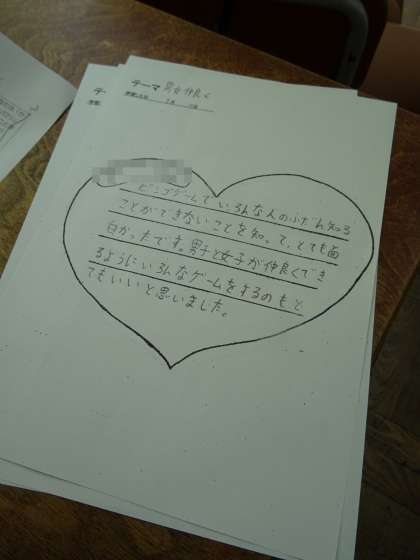 テーマ 男女仲良く
ビンゴゲームでいろんな人のふだん知る
ことができないことを知って、とても面
白かったです。男子と女子が仲良くでき
るようにいろんなゲームをするのもと
てもいいと思いました。
テ